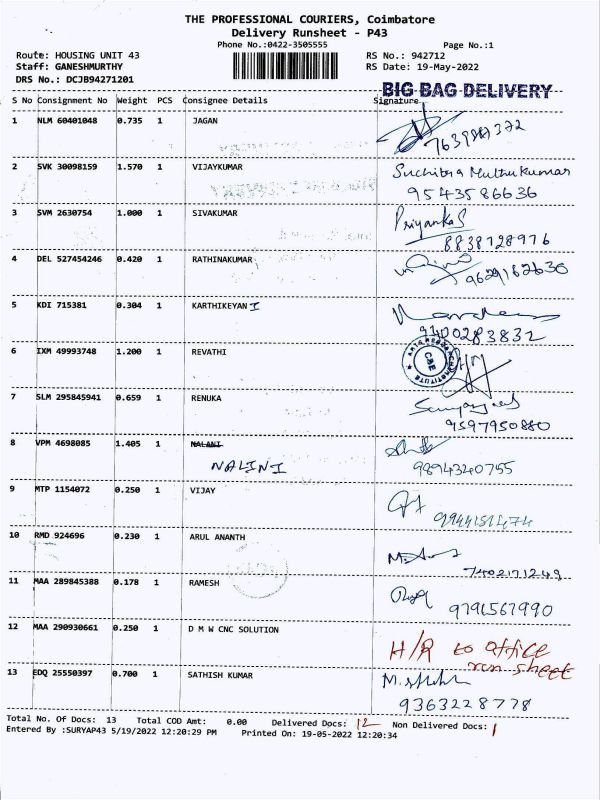 THE PROFESSIONAL COURIERS, Coimbatore
Delivery Runsheet - P43
Phone No.:0422-3505555 Page No.:1
Route: HOUSING UNIT 43 RS No.: 942712
Staff: GANESHMURTHY RS Date: 19-May-2022
DRS No.: DCJB94271201
BIG BAG DELIVERY
S No Consignment No Weight PCS Consignee Details Signature
1 NLM 60401048 0.735 1 JAGAN
2 SVK 30098159 1.570 1 VIJAYKUMAR Suchitra Muthukumar
9543586636
3 SVM 2630754 1.000 1 SIVAKUMAR Priyanka S
8838728976
4 DEL 527454246 0.420 1 RATHINAKUMAR
9629162630
5 KDI 715381 0.304 1 KARTHIKEYAN I
9400283832
6 IXM 49993748 1.200 1 REVATHI
CBE
7 SLM 295845941 0.659 1 RENUKA
9597950880
8 VPM 4698085 1.405 1 NALANI
NALINI 9894340755
9 MTP 1154072 0.250 1 VIJAY
9944151474
10 RMD 924696 0.230 1 ARUL ANANTH
7402171249
11 MAA 289845388 0.178 1 RAMESH
9791567990
12 MAA 290930661 0.250 1 D M W CNC SOLUTION H/R to office
run sheet
13 EDQ 25550397 0.700 1 SATHISH KUMAR
9363228778
Total No. Of Docs: 13 Total COD Amt: 0.00 Delivered Docs: 12 Non Delivered Docs: 1
Entered By :SURYAP43 5/19/2022 12:20:29 PM Printed On: 19-05-2022 12:20:34